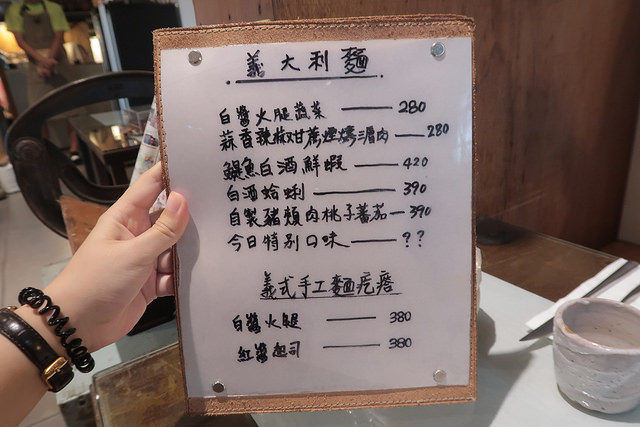 義大利麵
白醬火腿蔬菜 —— 280
蒜香辣椒甘蔗煙燻鹹肉 —— 280
鯷魚白酒鮮蝦 —— 420
白酒蛤蜊 —— 390
自製豬頰肉桃子蕃茄 — 390
今日特別口味 —— ??
義式手工麵疙瘩
白醬火腿 —— 380
紅醬起司 —— 380